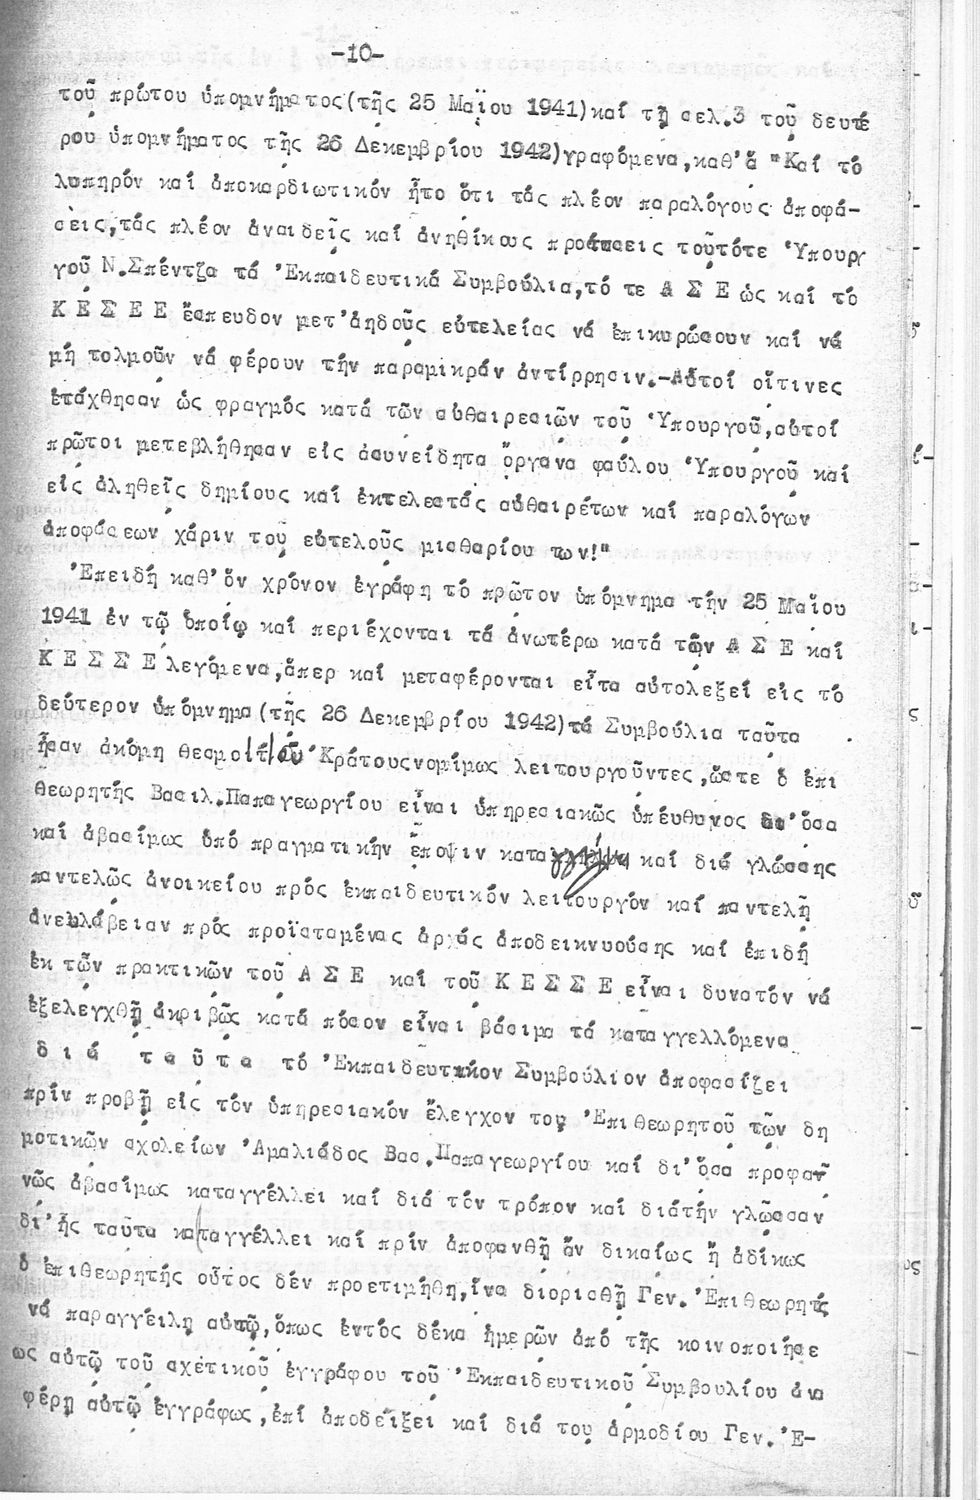 -10-
τοῦ πρώτου ὑπομνήματος(τῆς 25 Μαΐου 1941)καί τῇ σελ.3 τοῦ δευτέ
ρου ὑπομνήματος τῆς 26 Δεκεμβρίου 1942)γραφόμενα,καθ'ἅ "Καί τό
λυπηρόν καί ἀποκαρδιωτικόν ἦτο ὅτι τάς πλέον παραλόγους ἀποφά-
σεις,τάς πλέον ἀναιδεῖς καί ἀνηθίκους προτάσεις τοῦτότε Ὑπουργ
γοῦ Ν.Σπέντζα τά Ἐκπαιδευτικά Συμβούλια,τό τε Α Σ Ε ὡς καί τό
Κ Ε Σ Ε Ε ἔσπευδον μετ'ἀηδοῦς εὐτελείας νά ἐπικυρώσουν καί νά
μή τολμοῦν νά φέρουν τήν παραμικράν ἀντίρρησιν.-Αὐτοί οἵτινες
ἐτάχθησαν ὡς φραγμός κατά τῶν αὐθαιρεσιῶν τοῦ Ὑπουργοῦ,αὐτοί
πρῶτοι μετεβλήθησαν εἰς ἀσυνείδητα ὄργανα φαύλου Ὑπουργοῦ καί
εἰς ἀληθεῖς δημίους καί ἐκτελεστάς αὐθαιρέτων καί παραλόγων
ἀποφάσεων χάριν τοῦ εὐτελοῦς μισθαρίου των!"
Ἐπειδή καθ'ὅν χρόνον ἐγράφη τό πρῶτον ὑπόμνημα τήν 25 Μαΐου
1941 ἐν τῷ ὁποίῳ καί περιέχονται τά ἀνωτέρω κατά τῶν Α Σ Ε καί
Κ Ε Σ Σ Ε λεγόμενα,ἅπερ καί μεταφέρονται εἶτα αὐτολεξεί εἰς τό
δεύτερον ὑπόμνημα(τῆς 26 Δεκεμβρίου 1942)τά Συμβούλια ταῦτα
ἦσαν ἀκόμη θεσμοί τοῦ Κράτουςνομίμως λειτουργοῦντες,ὥστε ὁ ἐπι
θεωρητής Βασιλ.Παπαγεωργίου εἶναι ὑπηρεσιακῶς ὑπεύθυνος δι'ὅσα
καί ἀβασίμως ὑπό πραγματικήν ἔποψιν καταγγέλλει καί διά γλώσσης
παντελῶς ἀνοικείου πρός ἐκπαιδευτικόν λειτουργόν καί παντελῆ
ἀνευλάβειαν πρός προϊσταμένας ἀρχάς ἀποδεικνυούσης καί ἐπιδή
ἐκ τῶν πρακτικῶν τοῦ Α Σ Ε καί τοῦ Κ Ε Σ Σ Ε εἶναι δυνατόν νά
ἐξελεγχθῇ ἀκριβῶς κατά πόσον εἶναι βάσιμα τά καταγγελλόμενα
δ ι ά τ α ῦ τ α τό Ἐκπαιδευτικόν Συμβούλιον ἀποφασίζει
πρίν προβῇ εἰς τόν ὑπηρεσιακόν ἔλεγχον του Ἐπιθεωρητοῦ τῶν δη
μοτικῶν σχολείων Ἀμαλιάδος Βασ.Παπαγεωργίου καί δι'ὅσα προφαν
νῶς ἀβασίμως καταγγέλλει καί διά τόν τρόπον καί διάτήν γλῶσσαν
δι'ἧς ταῦτα καταγγέλλει καί πρίν ἀποφανθῇ ἄν δικαίως ἤ ἀδίκως
ὁ ἐπιθεωρητής οὗτος δέν προετιμήθη,ἵνα διορισθῇ Γεν.Ἐπιθεωρητής
νά παραγγείλῃ αὐτῷ,ὅπως ἐντός δέκα ἡμερῶν ἀπό τῆς κοινοποιήσε
ως αὐτῷ τοῦ σχετικοῦ ἐγγράφου τοῦ Ἐκπαιδευτικοῦ Συμβουλίου ἀνα
φέρῃ αὐτῷ ἐγγράφως,ἐπί ἀποδείξει καί διά του ἁρμοδίου Γεν.Ἐ-